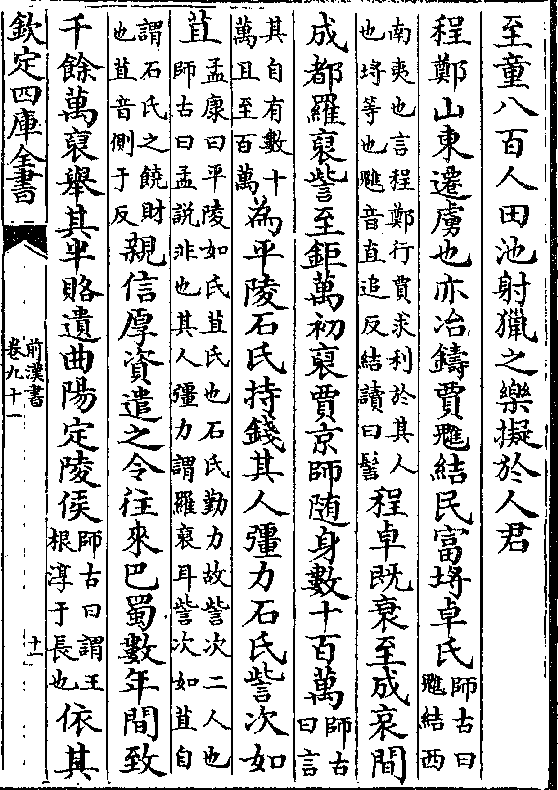 至童八百人田池射獵之樂擬於人君
程鄭山東遷虜也亦冶鑄賈魋結民富埒卓氏師古曰魋結西
南夷也言程鄭行賈求利於其人也埒等也魋音直追反結讀曰髻程卓既衰至成哀間
成都羅裒訾至鉅萬初裒賈京師隨身數十百萬師古曰言
其自有數十萬且至百萬為平陵石氏持錢其人彊力石氏訾次如
苴孟康曰平陵如氏苴氏也石氏勤力故訾次二人也師古曰孟説非也其人彊力謂羅裒耳訾次如苴自
謂石氏之饒財也苴音側于反親信厚資遣之令往來巴蜀數年間致
千餘萬裒舉其半賂遺曲陽定陵侯師古曰謂王根淳于長也依其
欽定四庫全書
前漢書
卷九十一
十一